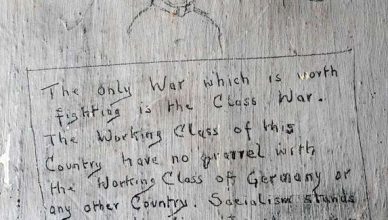 The only War which is worth
fighting is the Class War.
The Working Class of this
Country have no qurrel with
the Working Class off Germany or
any other Country. Socialism stands